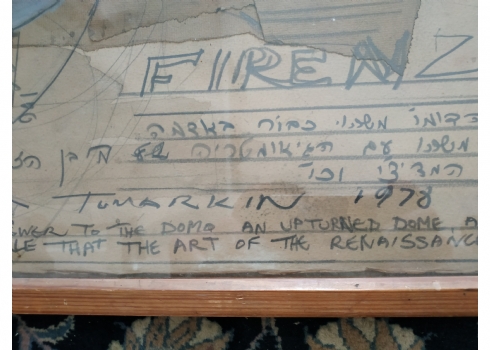 FIRENZ
משהו כבור באדמה
משהו עם הגיאומטריה של
המדיצ'י וכו'
TUMARKIN 1978
WER TO THE DOMO AN UPTURNED DOME, A
LE THAT THE ART OF THE RENAISSANC